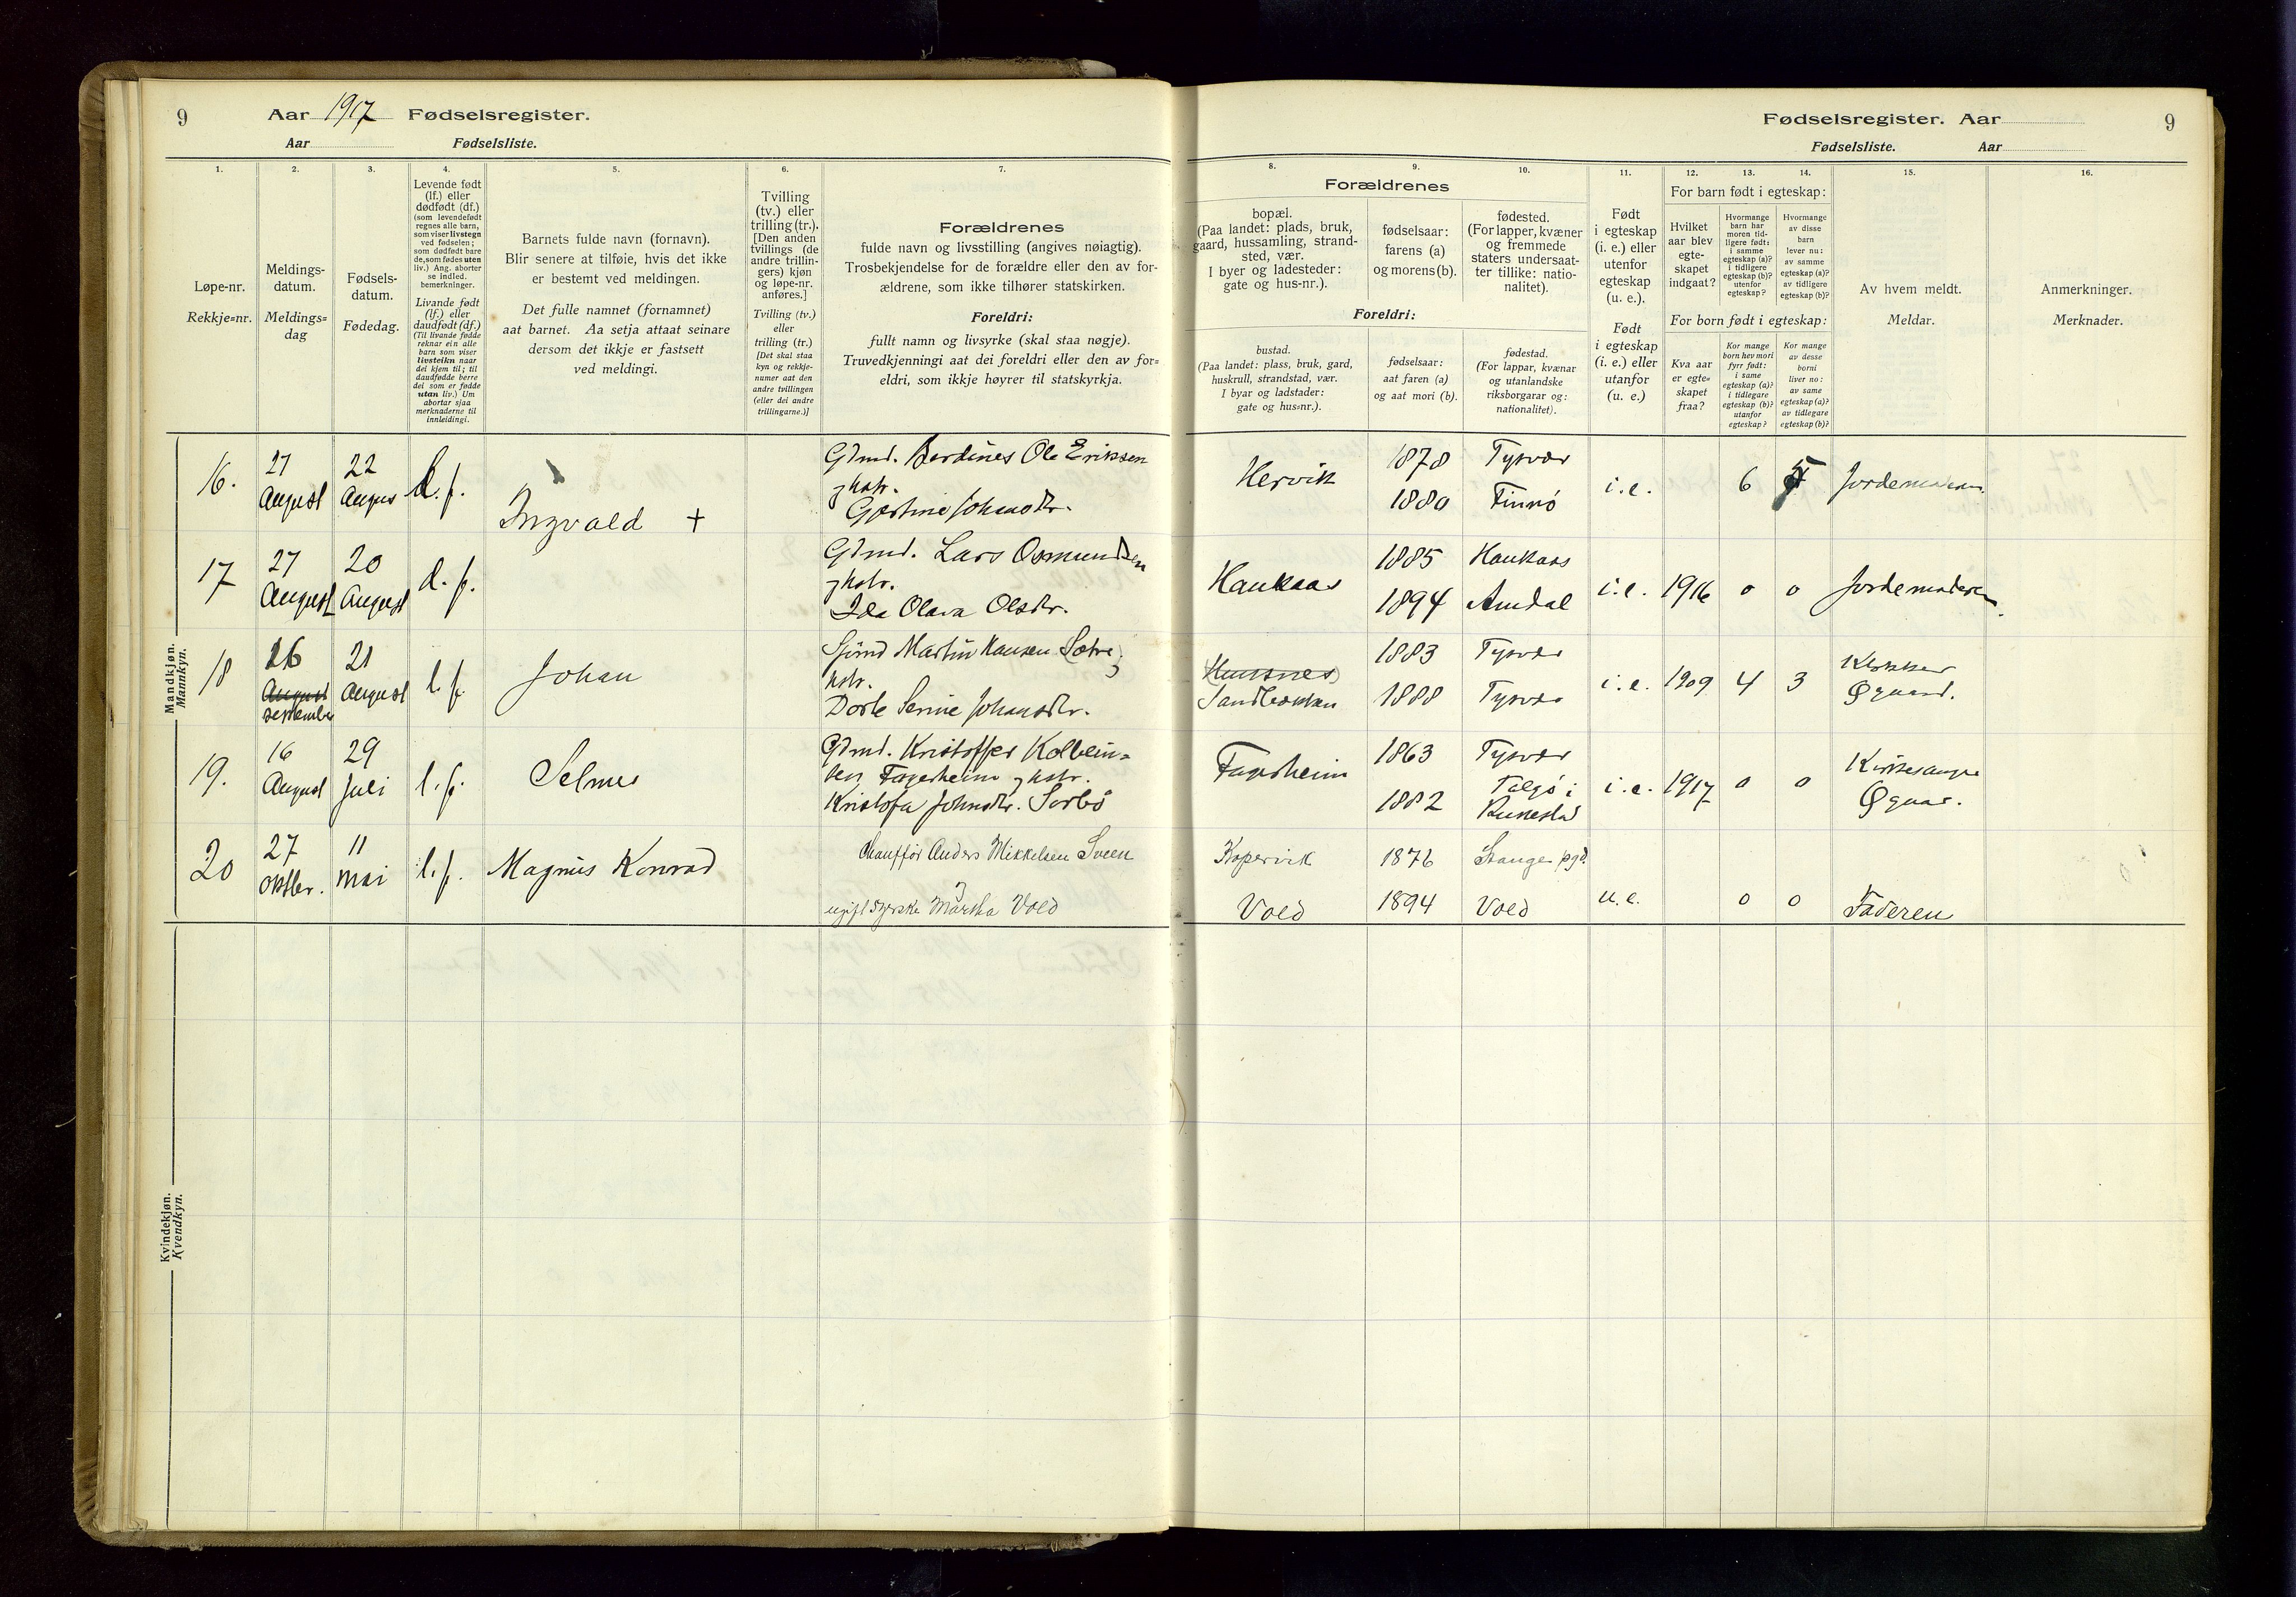 9
Aar 1917 Fødselsregister.
Aar Fødselsliste.
1.
2.
3.
4.
5.
6.
7.
Løpe-nr.
Rekkje=nr.
Meldings-
datum.
Meldings=
dag
Fødsels-
datum.
Fødedag.
Levende født
(lf.) eller
dødfødt (df.)
(som levendefødt
regnes alle barn,
som viser livstegn
ved fødselen;
som dødfødt bare
de, som fødes uten
liv.) Ang. aborter
se indled.
bemerkninger.
Livande født
(lf.) eller
daudfødt (df.)
(Til livande fødde
reknar ein alle
barn som viser
livsteikn naar
dei kjem til; til
daudfødde berre
dei som er fødde
utan liv.) Um
abortar sjaa
merknaderne til
innleidingi.
Barnets fulde navn (fornavn).
Blir senere at tilføie, hvis det ikke
er bestemt ved meldingen.
Det fulle namnet (fornamnet)
aat barnet. Aa setja attaat seinare
dersom det ikkje er fastsett
ved meldingi.
Tvilling
(tv.) eller
trilling (tr.).
[Den anden
tvillings (de
andre trillin-
gers) kjøn
og løpe-nr.
anføres.]
Tvilling (tv.)
eller
trilling (tr.)
[Det skal staa
kyn og rekkje-
numer aat den
andre tvillingen
(eller dei andre
trillingarne.)]
Forældrenes
fulde navn og livsstilling (angives nøiagtig).
Trosbekjendelse for de forældre eller den av for-
ældrene, som ikke tilhører statskirken.
Foreldri:
fullt namn og livsyrke (skal staa nøgje).
Truvedkjenningi aat dei foreldri eller den av for=
eldri, som ikkje høyrer til statskyrkja.
Mandkjøn.
Mannkyn.
16.
27
August
22
August
l. f.
Ingvald +
Gdmd. Berdines Ole Eriksen
og hstr.
Gjertine Johansdtr.
17
27
August
20
August
d. f.
Gdmd. Lars Osmundsen
og hstr.
Ida Olava Olsdtr.
18
26
August
September
21
August
l. f.
Johan
Sjømd Martin Hansen Sætre
og hstr.
Dorte Serine Johansdtr.
19.
16
August
29
Juli
l. f.
Selmer
Gdmd. Kristoffer Kolbein=
sen Fagerheim og hstr.
Kristofa Johnsdtr. Sørbø
20
27
Oktbr.
11
Mai
l. f.
Magnus Konrad
Chauffør Anders Mikkelsen Sveen
og
ugift syerske Martha Vold
Kvindekjøn.
Kvendkyn.
Fødselsregister. Aar 9
Fødselsliste. Aar
8.
9.
10.
11.
12.
13.
14.
15.
16.
Forældrenes
bopæl.
(Paa landet: plads, bruk,
gaard, hussamling, strand-
sted, vær.
I byer og ladesteder:
gate og hus-nr.).
fødselsaar:
farens (a)
og morens (b).
fødested.
(For lapper, kvæner
og fremmede
staters undersaat-
ter tillike: natio-
nalitet).
Foreldri:
bustad.
(Paa landet: plass, bruk, gard,
huskrull, strandstad, vær.
I byar og ladstader:
gate og hus=nr.).
fødselsaar:
aat faren (a)
og aat mori (b).
fødestad.
(For lappar, kvænar
og utanlandske
riksborgarar og:
nationalitet).
Født
i egteskap
(i. e.) eller
utenfor
egteskap
(u. e.).
Født
i egteskap
(i. e.) eller
utanfor
(u. e.)
For barn født i egteskap:
Hvilket
aar blev
egte-
skapet
indgaat?
Hvormange
barn har
moren tid-
ligere født:
i samme
egteskap (a)?
i tidligere
egteskap (b)?
utenfor
egteskap?
Hvormange
av disse
barn
lever nu:
av samme
egteskap (a)?
av tidligere
egteskap (b)?
For born født i egteskap:
Kva aar
er egte=
skapet
fraa?
Kor mange
born hev mori
fyrr født:
i same
egteskap (a)?
i tidlegare
egteskap (b)?
utanfor
egteskap?
Kor mange
av desse
borni
liver no:
av same
egteskap (a)?
av tidlegare
egteskap (b)?
Av hvem meldt.
Meldar.
Anmerkninger.
Merknader.
Hervik
1878
1880
Tysvær
Finnø
i. e.
6
5
Jordemoderen
Haukaas
1885
1894
Haukaas
Amdal
i. e. 1916 0 0 Jordemoderen.
Sandbekken
1883
1888
Tysvær
Tysvær
i. e. 1909 4 3
Klokker
Øgaard.
Fagerheim
1863
1882
Tysvær
Talgø i
i. e. 1917 0 0
Kirkesanger
Øgaar.
Kopervik
Vold
1876
1894
Stange pgd.
Vold
u. e. 0 0 Faderen